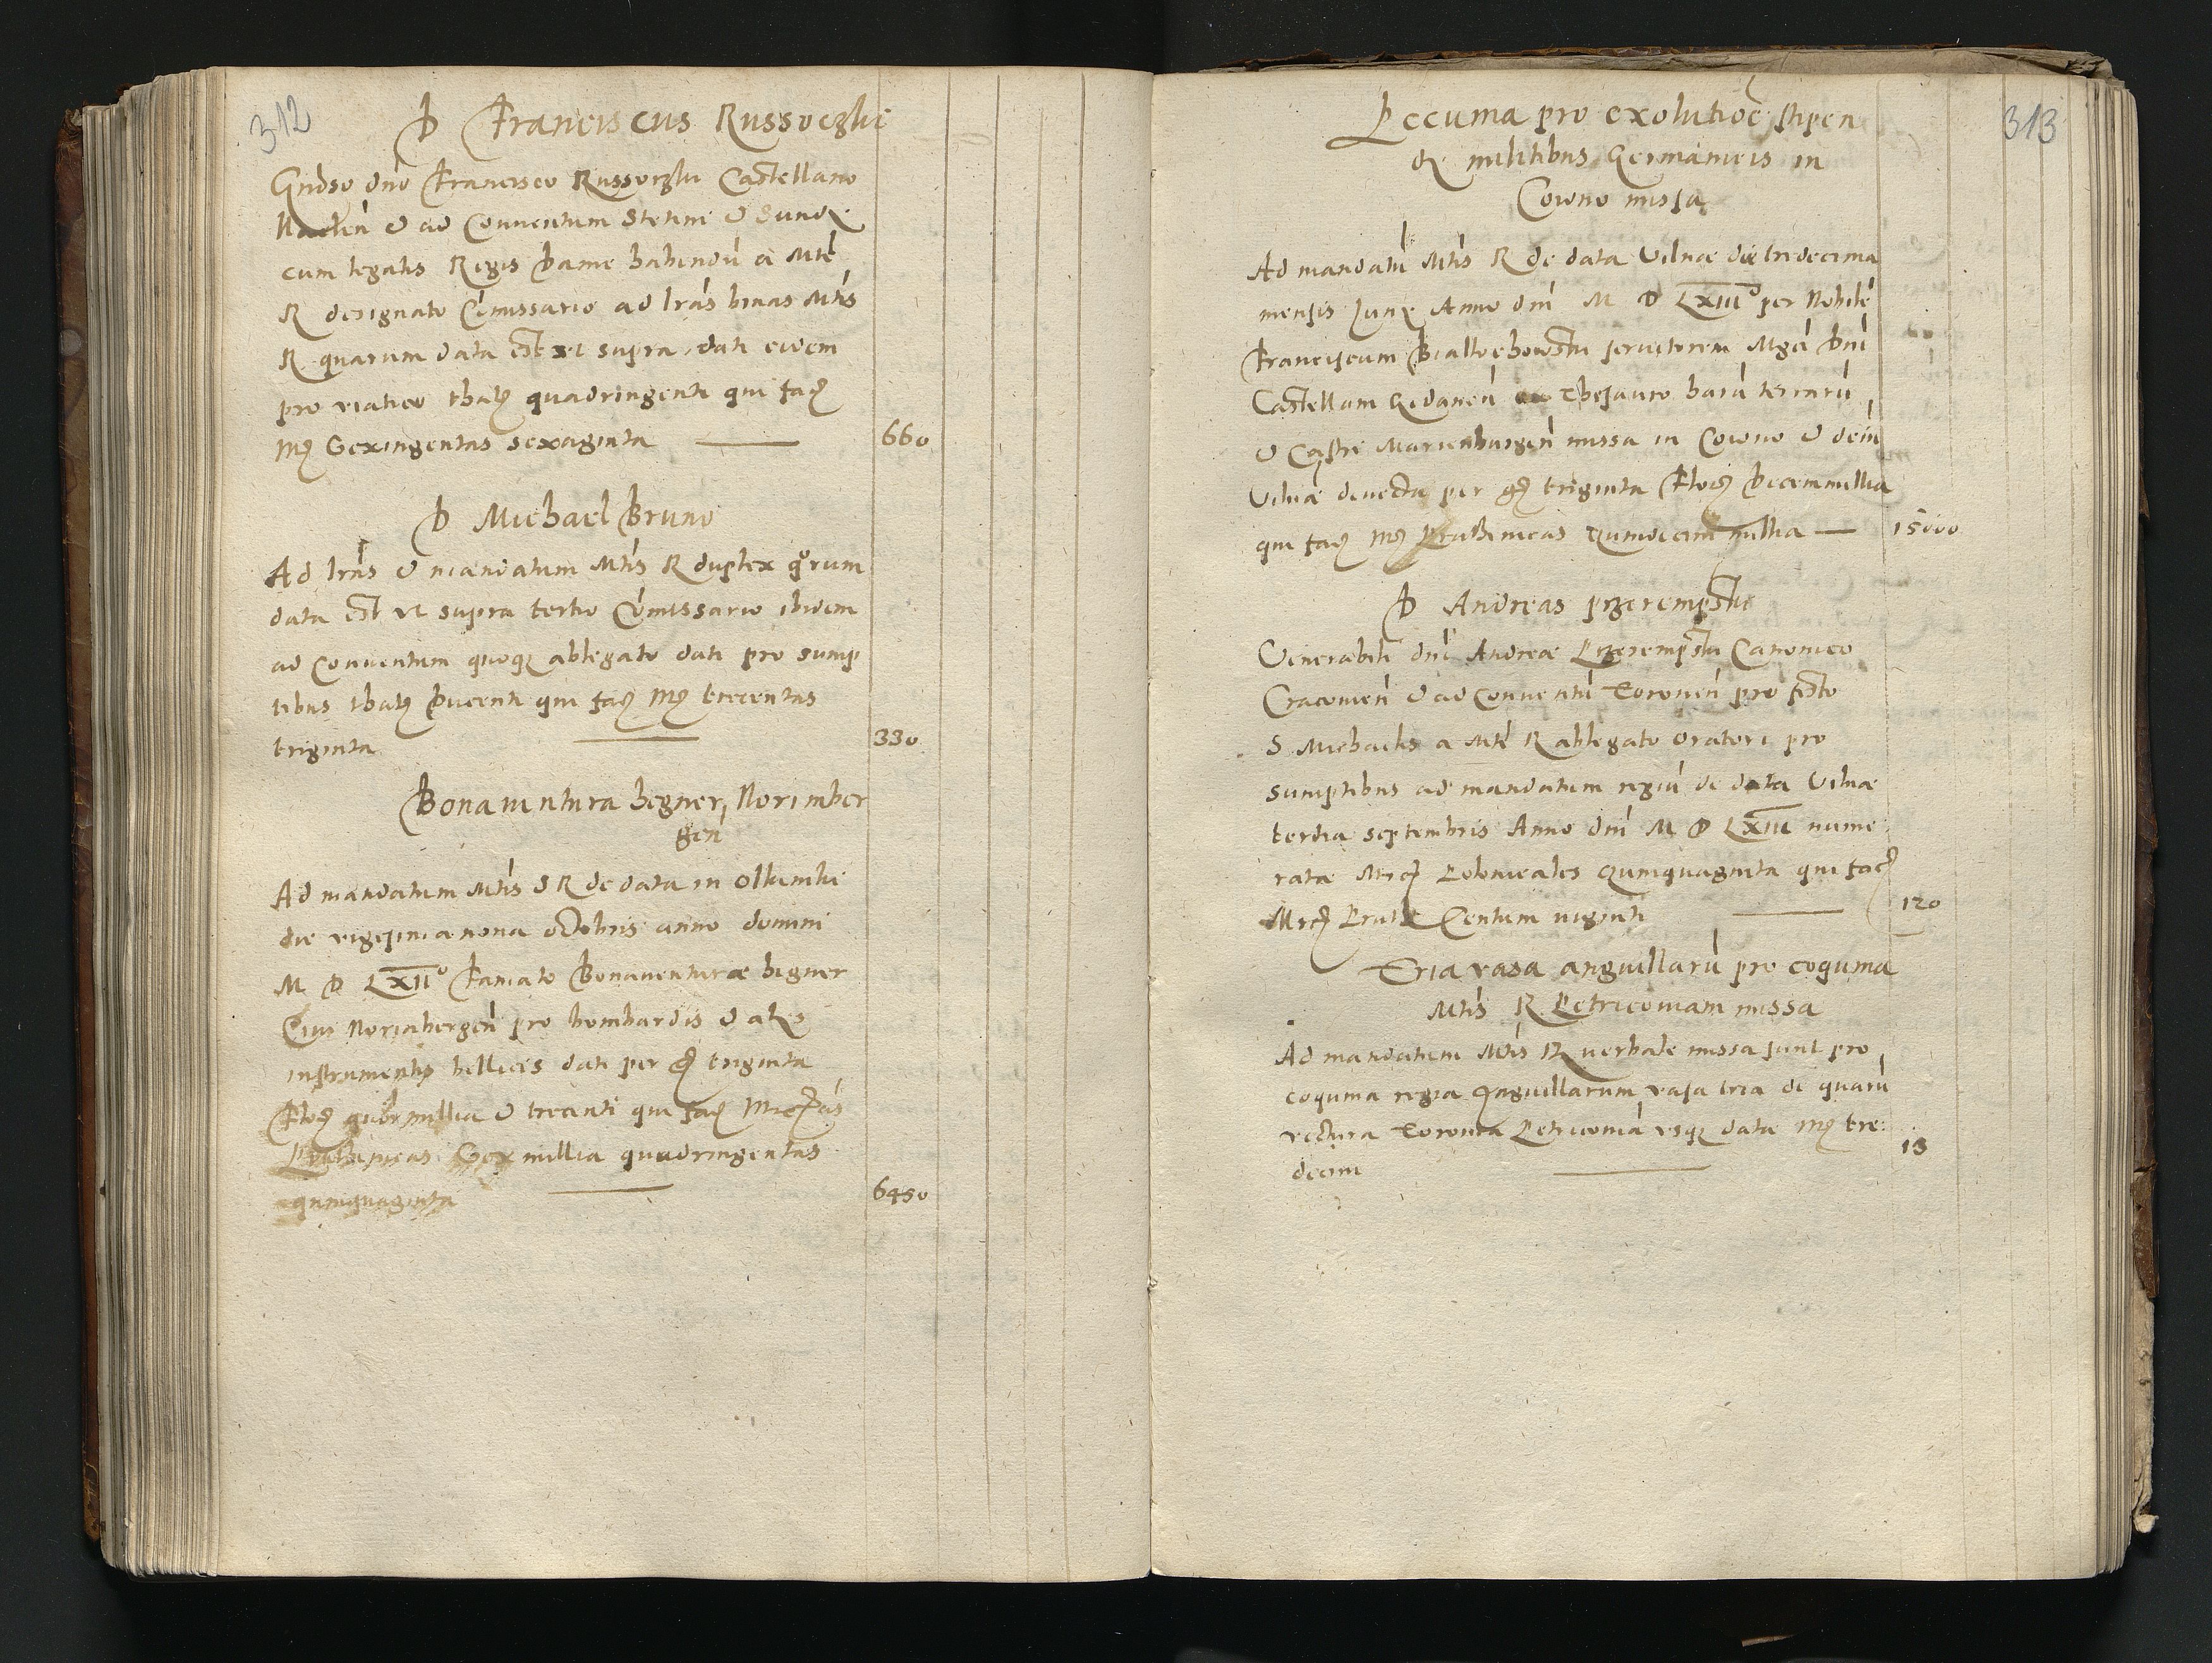 312
D Franciscus Russoczki
Gndso dno Francisco Russoczki Castellano
Naclen et ad Conuentum Stetini et Sundę
cum legatis Regis Daniæ habendū a Mte
R designato Comissario ad lras binas Mtis
R quarum data est vt supra dati eidem
pro viatico thaℓ quadringenti qui faciunt
mȝ Sexingentas sexaginta — 660
D Michael Bruno
Ad lras et mandatum Mtis R duplex quorum
data est vt supra tertio Comissario ibidem
ad Conuentum quoqȝ ablegato dati pro sump
tibus thaℓ Ducenti qui faciunt mȝ trecentas
triginta — 330
Bonauentura hegner Norimber
gen
Ad mandatum Mtis S R de data in Olkiniki
die vigesimanona octobris anno domini
M D LXII° Famato Bonauenturæ hegner
Ciui Norimbergen pro bombardis et alys
instrumentis bellicis dati per gȝ triginta
Floȝ quatuor millia et trecenti qui faciunt Mrcas
Pruthenicas Sex millia quadringentas
quinquaginta — 6450
313
Pecunia pro exolutioe stipen
dy militibus Germanicis in
Cowno missa
Ad mandatū Mtis R de data Vilnæ die tridecima
mensis Juny Anno dni M D LXIII° per Nobile
Franciscum Bialloghowski seruitorem Mgci Dni
Castellani Gedanen Thesauro harū terrarū
et Castri Marienburgen missa in Cowno et dein
Vilnæ deuecta per gȝ triginta Floȝ Decem millia
qui faciunt mȝ Pruthenicas Quindecim millia — 15000
D Andreas przerempski
Venerabili dno Andreæ Przerempski Canonico
Cracouien et ad Conuentū Toronen pro festo
S Michaelis a Mte R ablegato oratori pro
sumptibus ad mandatum regiū de data Vilnæ
tertia septembris Anno dni M D LXIII nume
ratæ Mrcȝ Polonicales Quinquaginta qui faciunt
Mrcȝ Pruthe Centum viginti — 120
Tria vasa anguillarū pro coquina
Mtis R Petricouiam missa
Ad mandatum Mtis R verbale missa sunt pro
coquina regia Anguillarum vasa tria de quarū
vectura Toronia Petricouiā vsqȝ data mȝ tre
decim — 13